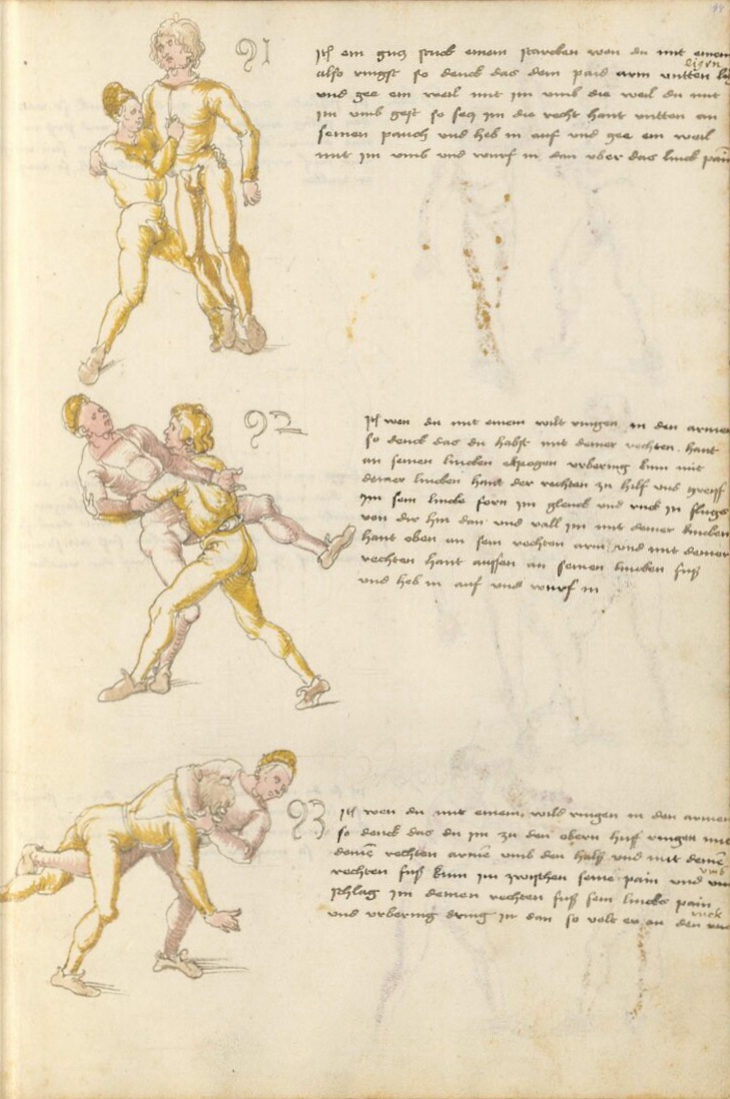 91
Itm ein gucz stuck einem starcken wen du mit einem
also ringst so denck das dein paid arm untten
ligen
und gee ein weil mit im umb die weil du mit
im umb gest so secz im die recht hant untten an
seinen pauch und heb in auf und gee ein weil
mit im umb und wurf in dan uber das linck pain
92
Itm wen du mit einem wilt ringen in den armen
so denck das du habst mit deiner rechten hant
an seinen lincken elpogen urbering kum mit
deiner lincken hant der rechten zu hilf und greiff
im sein lincke forn im glenck und ruck in flugs
von dir hin dan und vall im mit deiner lincken
hant oben an sein rechten arm und mit deiner
rechten hant aussen an seinen lincken fuß
und heb in auf und wurf in
93
Itm wen du mit einem wild ringen in den armen
so denck das du im zu den obern huff ringen mit
deinem rechten arme umb den halß und mit deine
rechten fuß kum im zwischen seine pain und
umb
schlag im deinen rechten fuß sein linckes pain
und urbering dring in dan so velt er an den
ruck